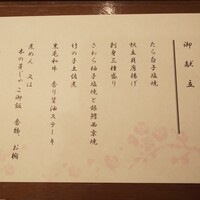 御献立
たら白子塩焼
帆立貝唐揚げ
刺身三種盛り
さわら柚子塩焼と銀鱈西京焼
竹の子土佐煮
黒毛和牛 香り醤油ステーキ
煮めん 又は
木の芽じゃこ御飯 香物 お椀